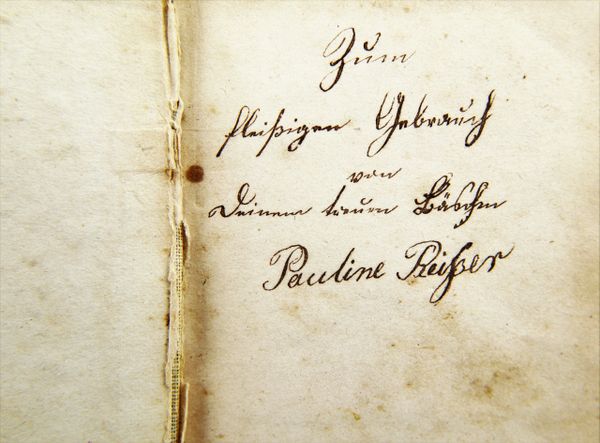 Zum
fleißigen Gebrauch
von
Deinem treuen Bäschen
Pauline Reißer